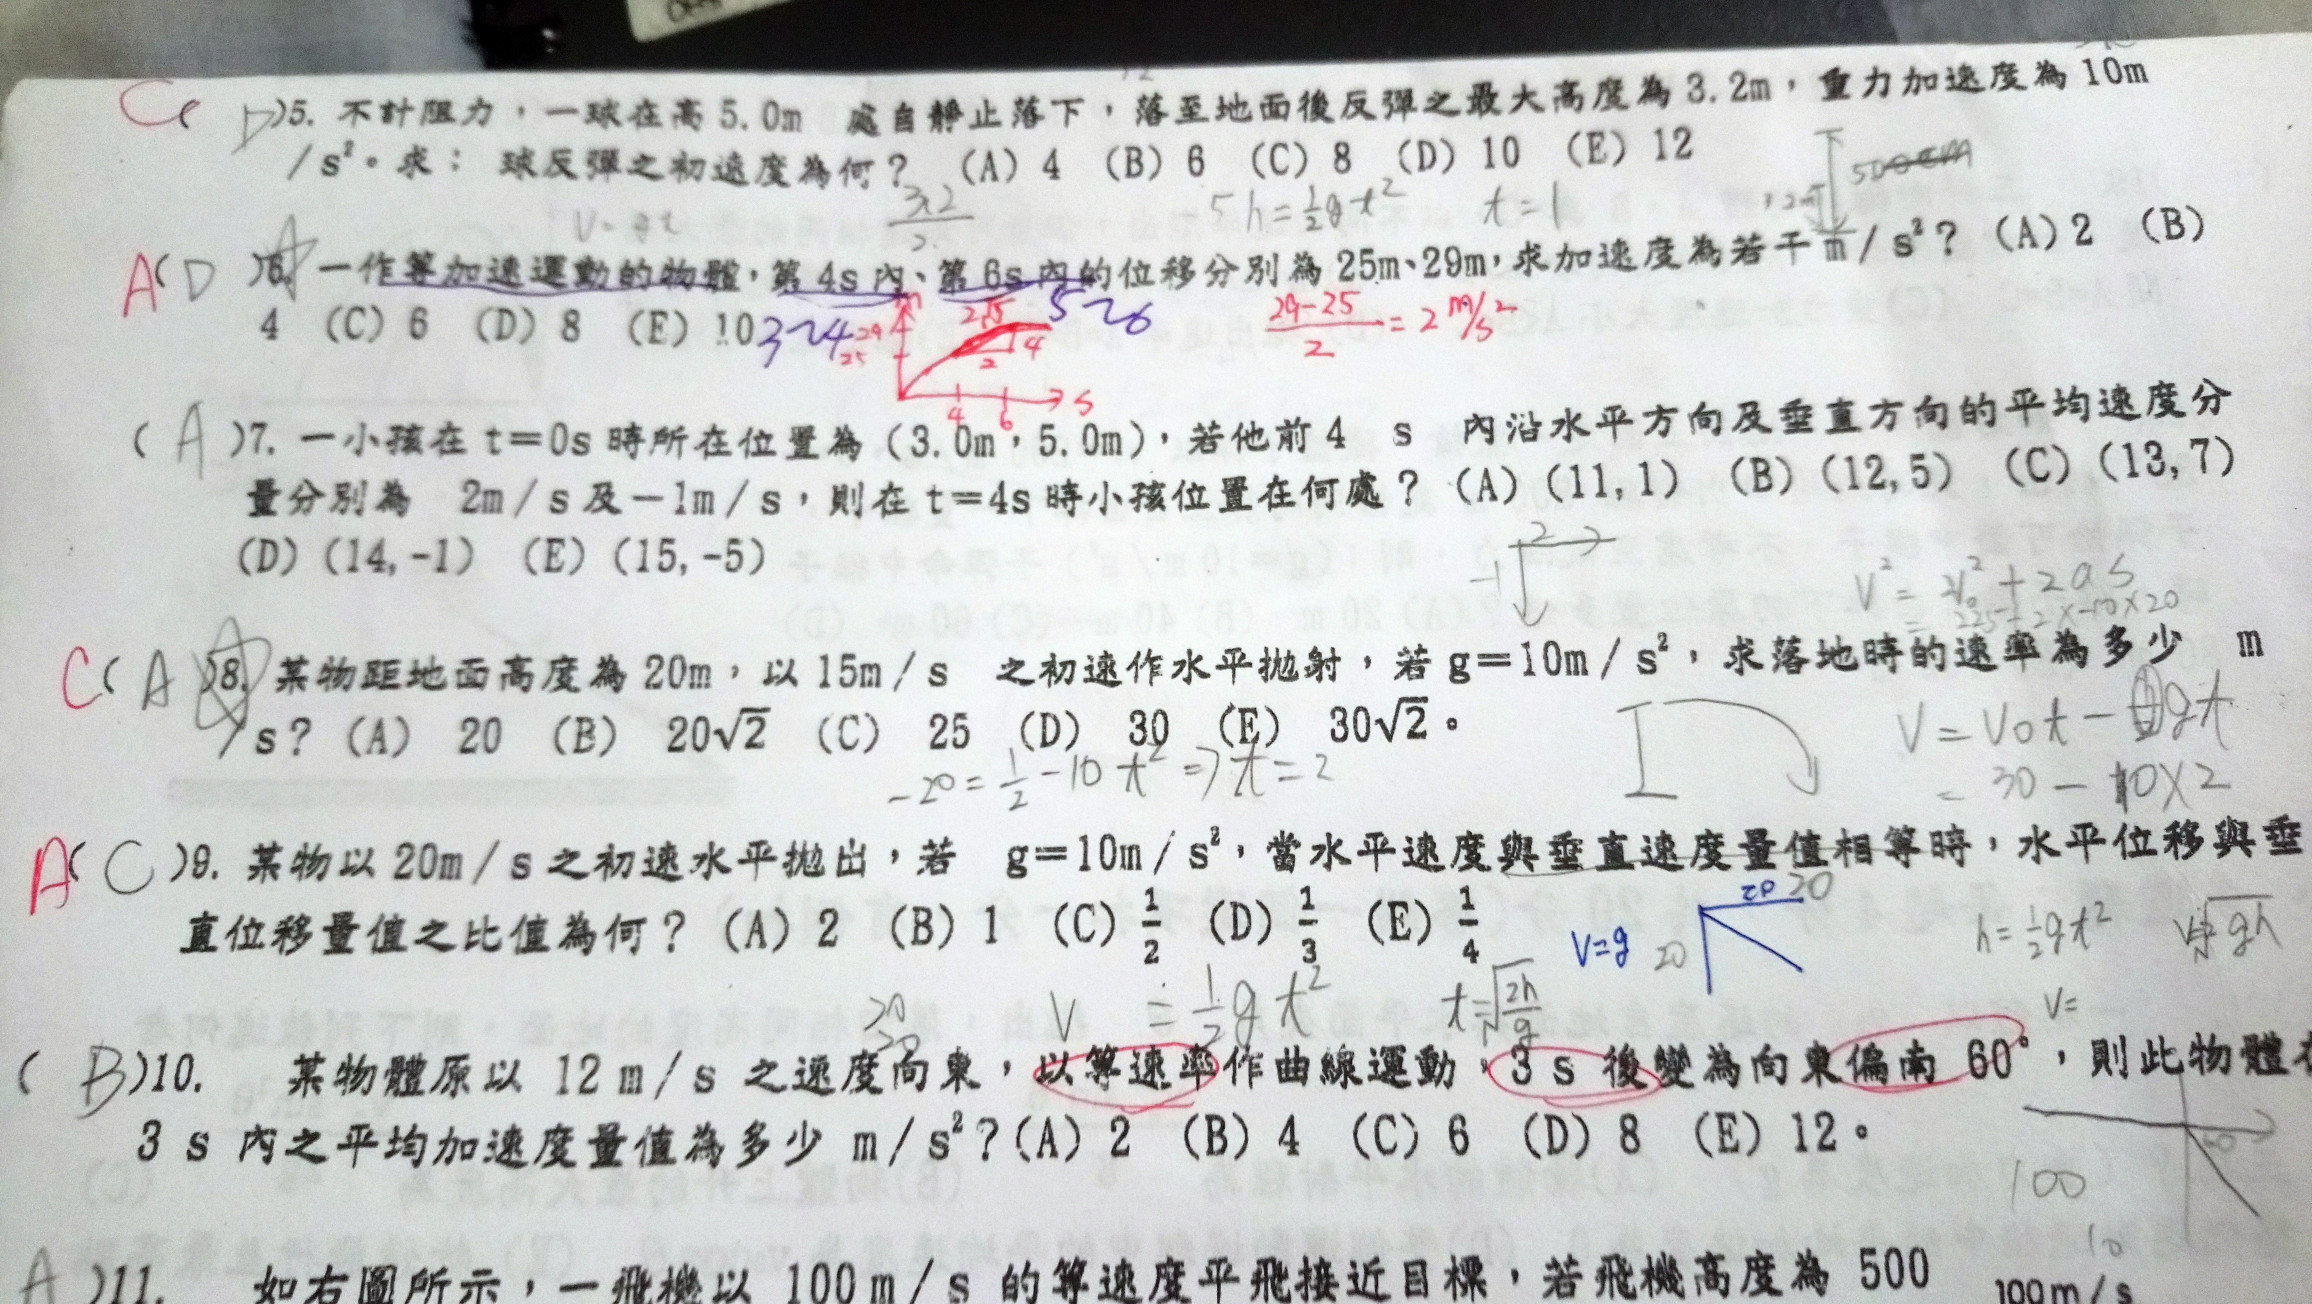 C( D )5. 不計阻力，一球在高 5.0m 處自靜止落下，落至地面後反彈之最大高度為 3.2m，重力加速度為 10m
/s²。求： 球反彈之初速度為何？ (A) 4 (B) 6 (C) 8 (D) 10 (E) 12
500cm
V=gt
3.2
2
5 h=½gt² t=1
A( D )6. 一作等加速運動的物體，第 4s 內、第 6s 內的位移分別為 25m、29m，求加速度為若干 m/s²？ (A) 2 (B)
4 (C) 6 (D) 8 (E) 10
3~4
5~6
29
25
4
2
4 6 s
29-25
2
= 2 m/s²
( A )7. 一小孩在 t=0s 時所在位置為 (3.0m，5.0m)，若他前 4 s 內沿水平方向及垂直方向的平均速度分
量分別為 2m/s 及 -1m/s，則在 t=4s 時小孩位置在何處？ (A) (11,1) (B) (12,5) (C) (13,7)
(D) (14,-1) (E) (15,-5)
2
-1
V² = V₀² + 2as
= 225+2×-10×20
C( A )8. 某物距地面高度為 20m，以 15m/s 之初速作水平拋射，若 g=10m/s²，求落地時的速率為多少 m
/s？ (A) 20 (B) 20√2 (C) 25 (D) 30 (E) 30√2。
-20 = ½ -10 t² => t = 2
V = V₀t - gt
= 30 - 10×2
A( C )9. 某物以 20m/s 之初速水平拋出，若 g=10m/s²，當水平速度與垂直速度量值相等時，水平位移與垂
直位移量值之比值為何？ (A) 2 (B) 1 (C) 1/2 (D) 1/3 (E) 1/4
V=g
20
20
20
h=½gt²
V=
20
20
V = ½gt²
t=√(2h/g)
( B )10. 某物體原以 12 m/s 之速度向東，以等速率作曲線運動，3 s 後變為向東偏南 60°，則此物體在
3 s 內之平均加速度量值為多少 m/s²？(A) 2 (B) 4 (C) 6 (D) 8 (E) 12。
60
100
10
A )11. 如右圖所示，一飛機以 100 m/s 的等速度平飛接近目標，若飛機高度為 500
100m/s